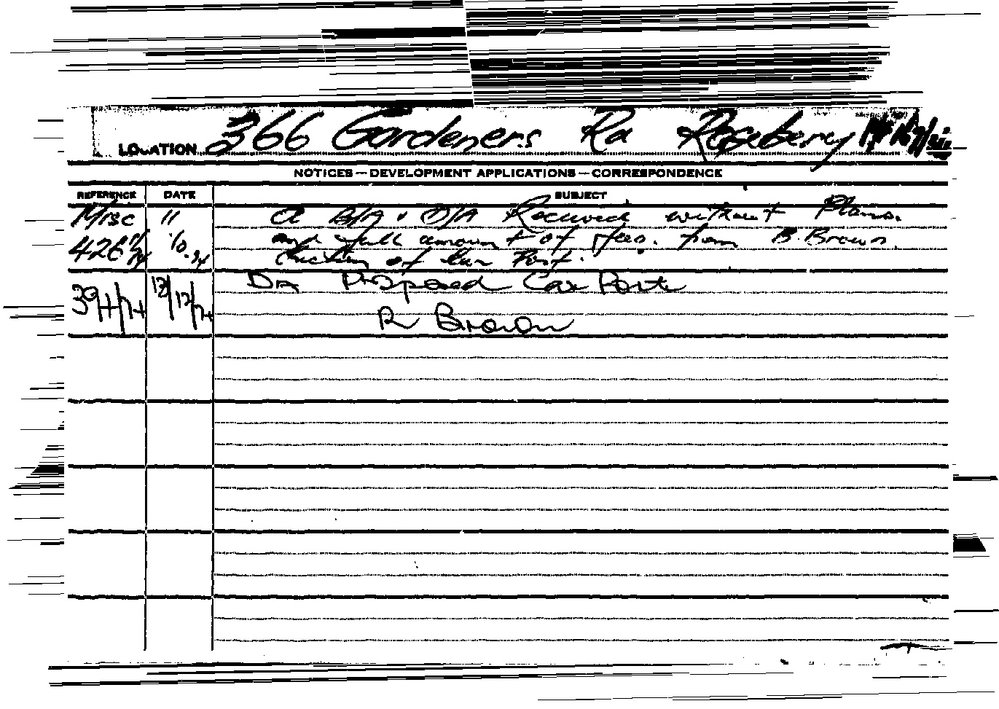 LOCATION 366 Gardeners Rd Rosebery
NOTICES — DEVELOPMENT APPLICATIONS — CORRESPONDENCE
REFERENCE DATE SUBJECT
Misc 11 A B/A & D/A Received without Plans.
and full amount of fees. from B. Brown.
of Car Port.
12/12/74 DA Proposed Car Port
R Brown